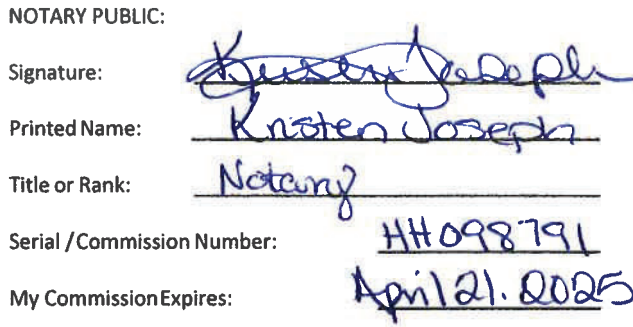 NOTARY PUBLIC:
Signature: Kristen Joseph
Printed Name: Kristen Joseph
Title or Rank: Notary
Serial / Commission Number: HH098791
My Commission Expires: April 21. 2025